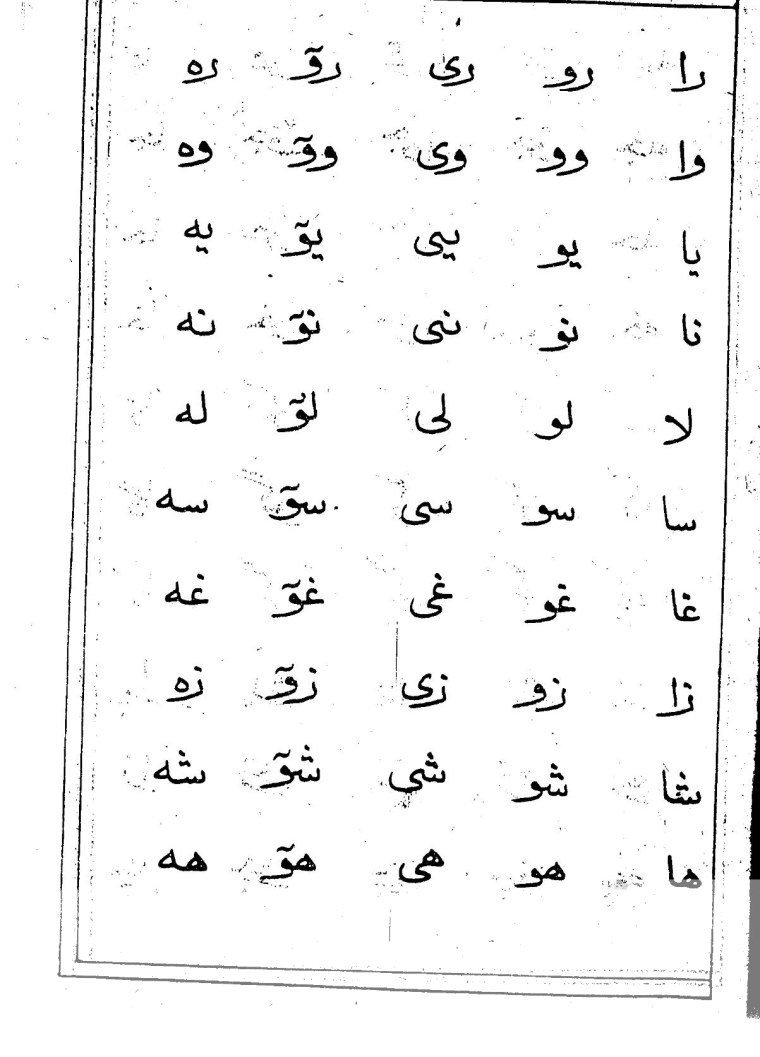 را رو رى روٓ ره
وا وو وى ووٓ وه
يا يو يى يوٓ يه
نا نو نى نوٓ نه
لا لو لى لوٓ له
سا سو سى سوٓ سه
غا غو غى غوٓ غه
زا زو زى زوٓ زه
شا شو شى شوٓ شه
ها هو هى هوٓ هه